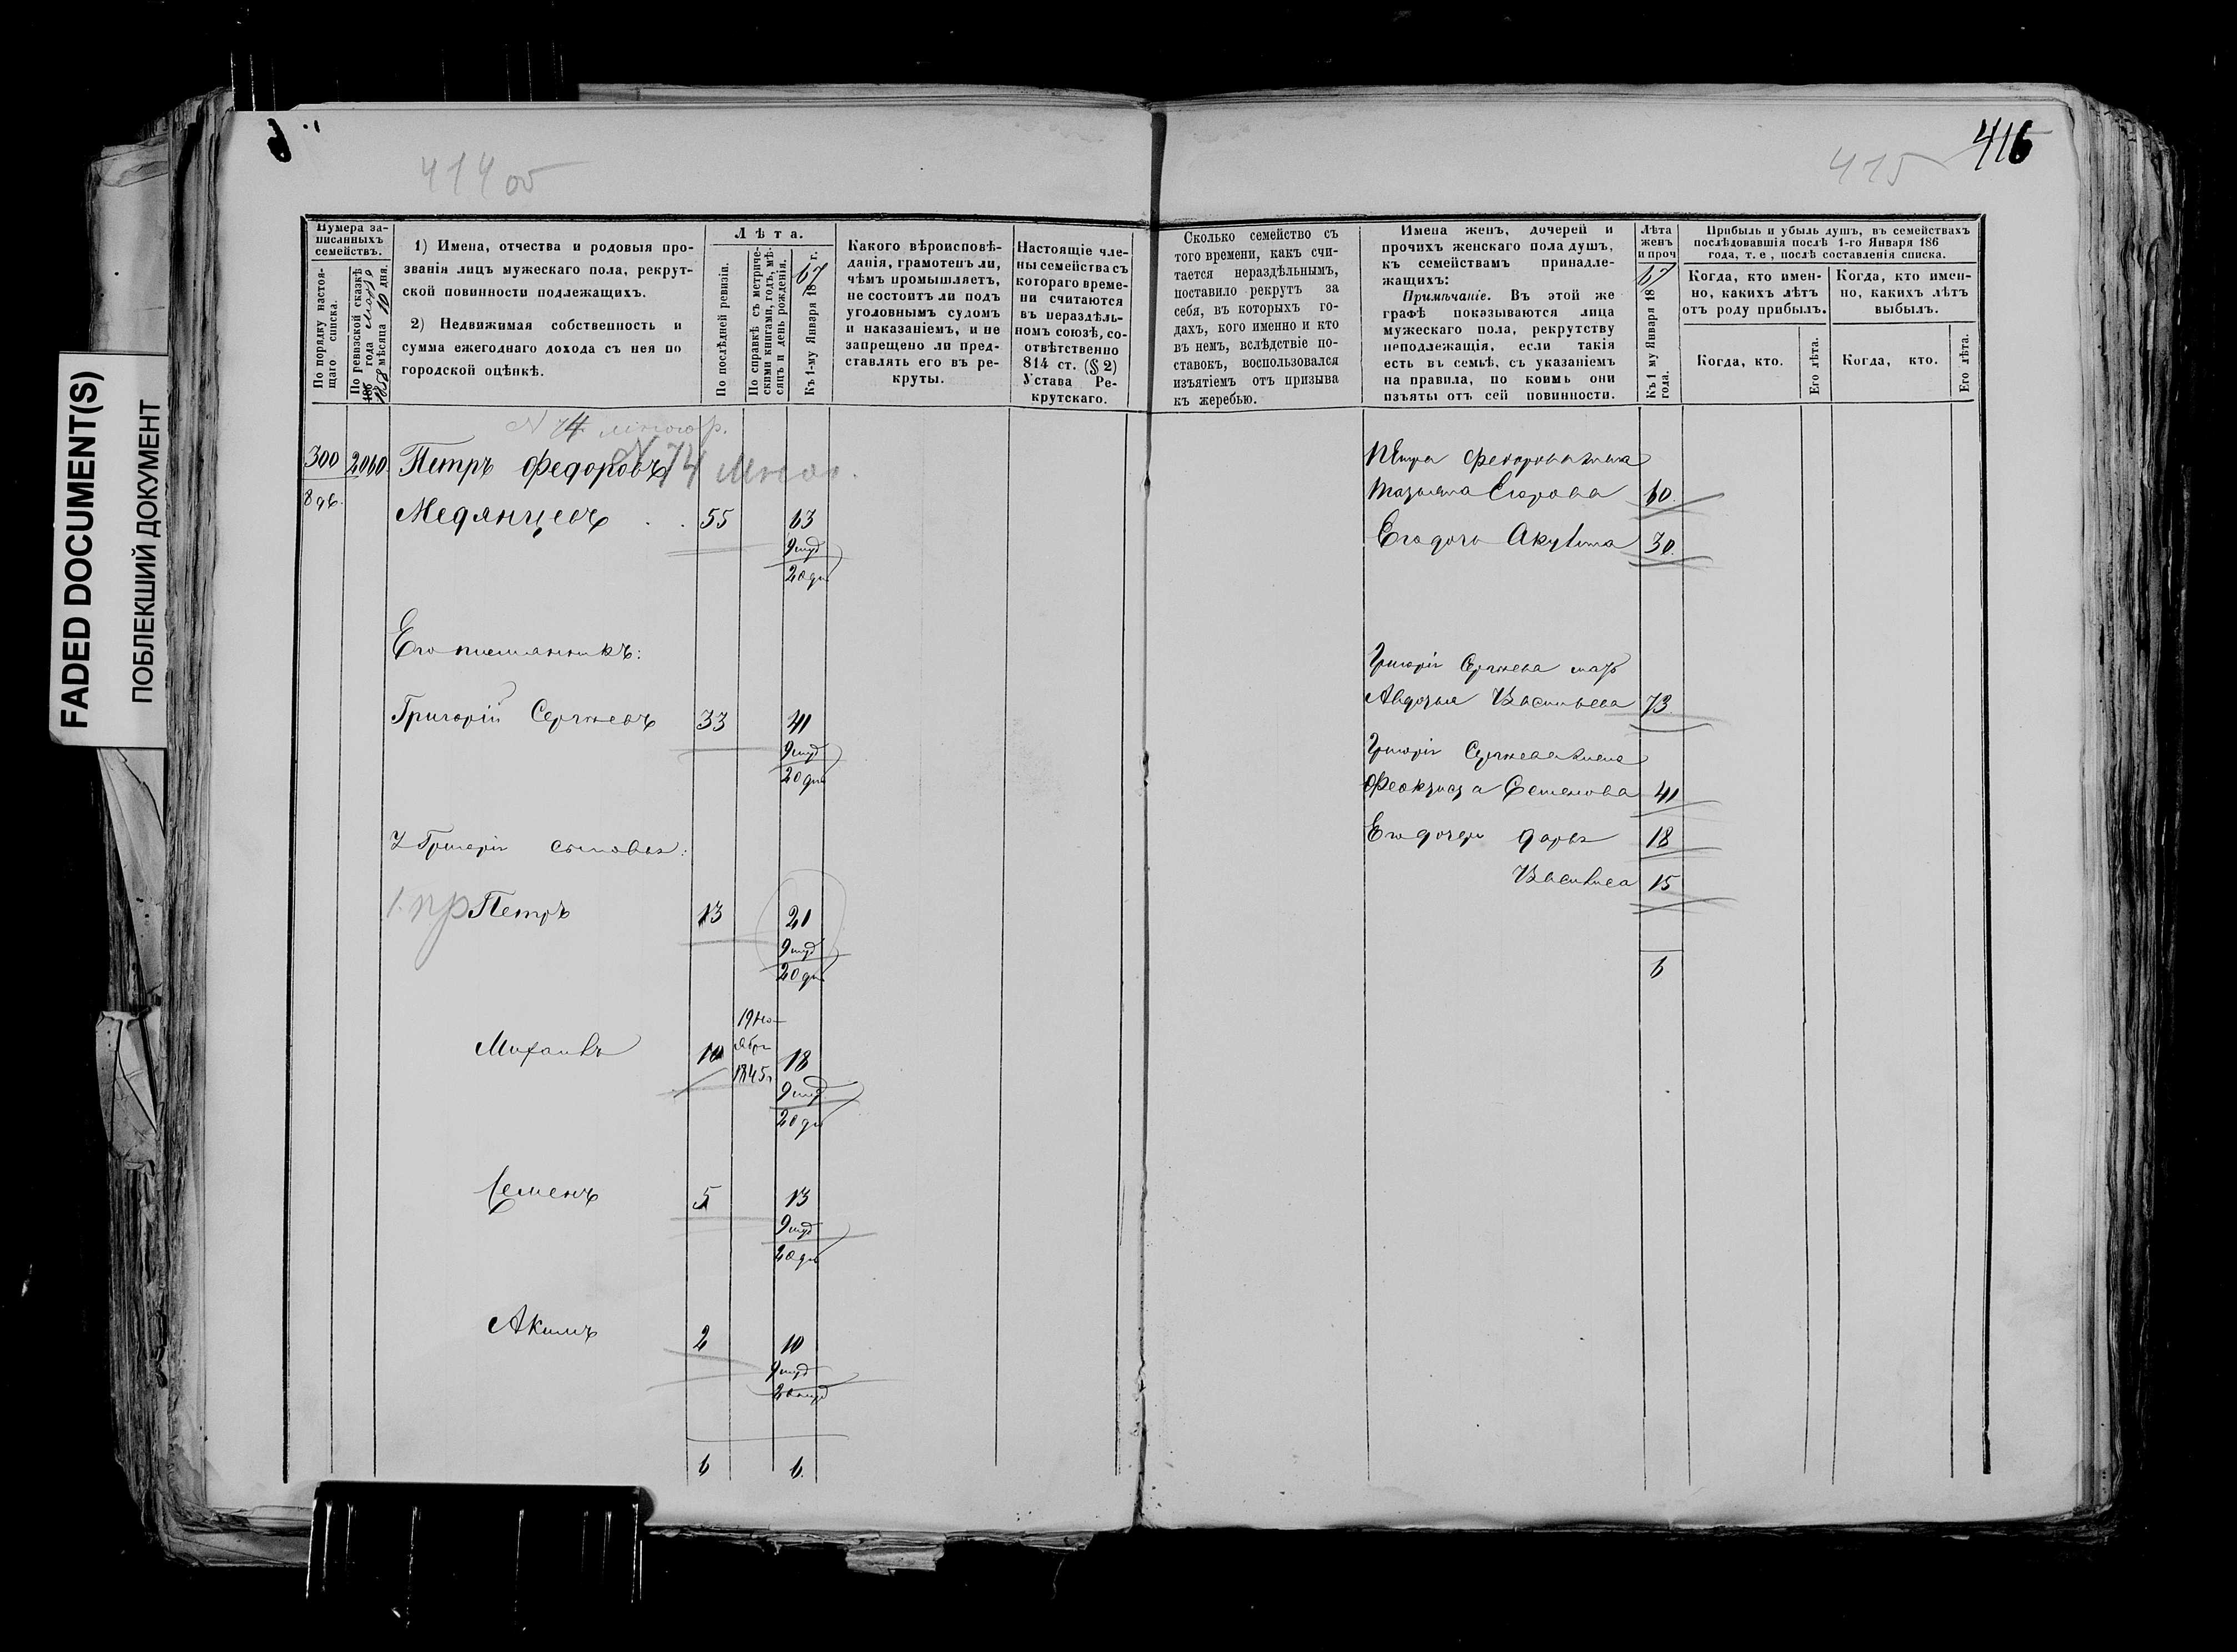 FADED DOCUMENT(S)
ПОБЛЕКШИЙ ДОКУМЕНТ
414 об
415
416
Нумера за-
писанныхъ
семействъ.
По порядку настоя-
щаго списка.
По ревизской сказкѣ
1858 года Марта
мѣсяца 10 дня.
1) Имена, отчества и родовыя про-
званія лицъ мужескаго пола, рекрут-
ской повинности подлежащихъ.
2) Недвижимая собственность и
сумма ежегоднаго дохода съ нея по
городской оцѣнкѣ.
Лѣта.
По послѣдней ревизіи.
По справкѣ съ метриче-
скими книгами, годъ, мѣ-
сяцъ и день рожденія.
Къ 1-му Января 1867 г.
Какого вѣроисповѣ-
данія, грамотенъ ли,
чѣмъ промышляетъ,
не состоитъ ли подъ
уголовнымъ судомъ
и наказаніемъ, и не
запрещено ли пред-
ставлять его въ ре-
круты.
Настоящіе чле-
ны семейства съ
котораго време-
ни считаются
въ нераздѣль-
номъ союзѣ, со-
отвѣтственно
814 ст. (§ 2)
Устава Ре-
крутскаго.
Сколько семейство съ
того времени, какъ счи-
тается нераздѣльнымъ,
поставило рекрутъ за
себя, въ которыхъ го-
дахъ, кого именно и кто
въ немъ, вслѣдствіе по-
ставокъ, воспользовался
изъятіемъ отъ призыва
къ жеребью.
Имена женъ, дочерей и
прочихъ женскаго пола душъ,
къ семействамъ принадле-
жащихъ:
Примѣчаніе. Въ этой же
графѣ показываются лица
мужескаго пола, рекрутству
неподлежащія, если такія
есть въ семьѣ, съ указаніемъ
на правила, по коимъ они
изъяты отъ сей повинности.
Лѣта
женъ
и проч
Къ 1 му Января 1867
года.
Прибыль и убыль душъ, въ семействахъ
послѣдовавшія послѣ 1-го Января 186
года, т. е, послѣ составленія списка.
Когда, кто имен-
но, какихъ лѣтъ
отъ роду прибылъ.
Когда, кто имен-
но, какихъ лѣтъ
выбылъ.
Когда, кто.
Его лѣта.
Когда, кто.
Его лѣта.
N 74
300 2060 Петръ Федоровъ N 74
Медянцевъ 55 63
9 мѣ
20 дн
Его племянникъ:
Григорій Сергѣевъ 33 41
9 мѣ
20 дн
У Григорія сыновья:
1. пр Петръ 13 21
9 мѣ
20 дн
19 Но-
ября
1845 г
Михаилъ 10 18
9 мѣ
20 дн
Семенъ 5 13
9 мѣ
20 дн
Акимъ 2 10
9 мѣ
6 6.
Петра Федорова жена
Татьяна Егорова 60.
Его дочь Акулина 30.
Григорія Сергѣева мать
Авдотья Васильева 73
Григорія Сергѣева жена
Феоктиста Семенова 41
Его дочери Дарья 18
Василиса 15
6